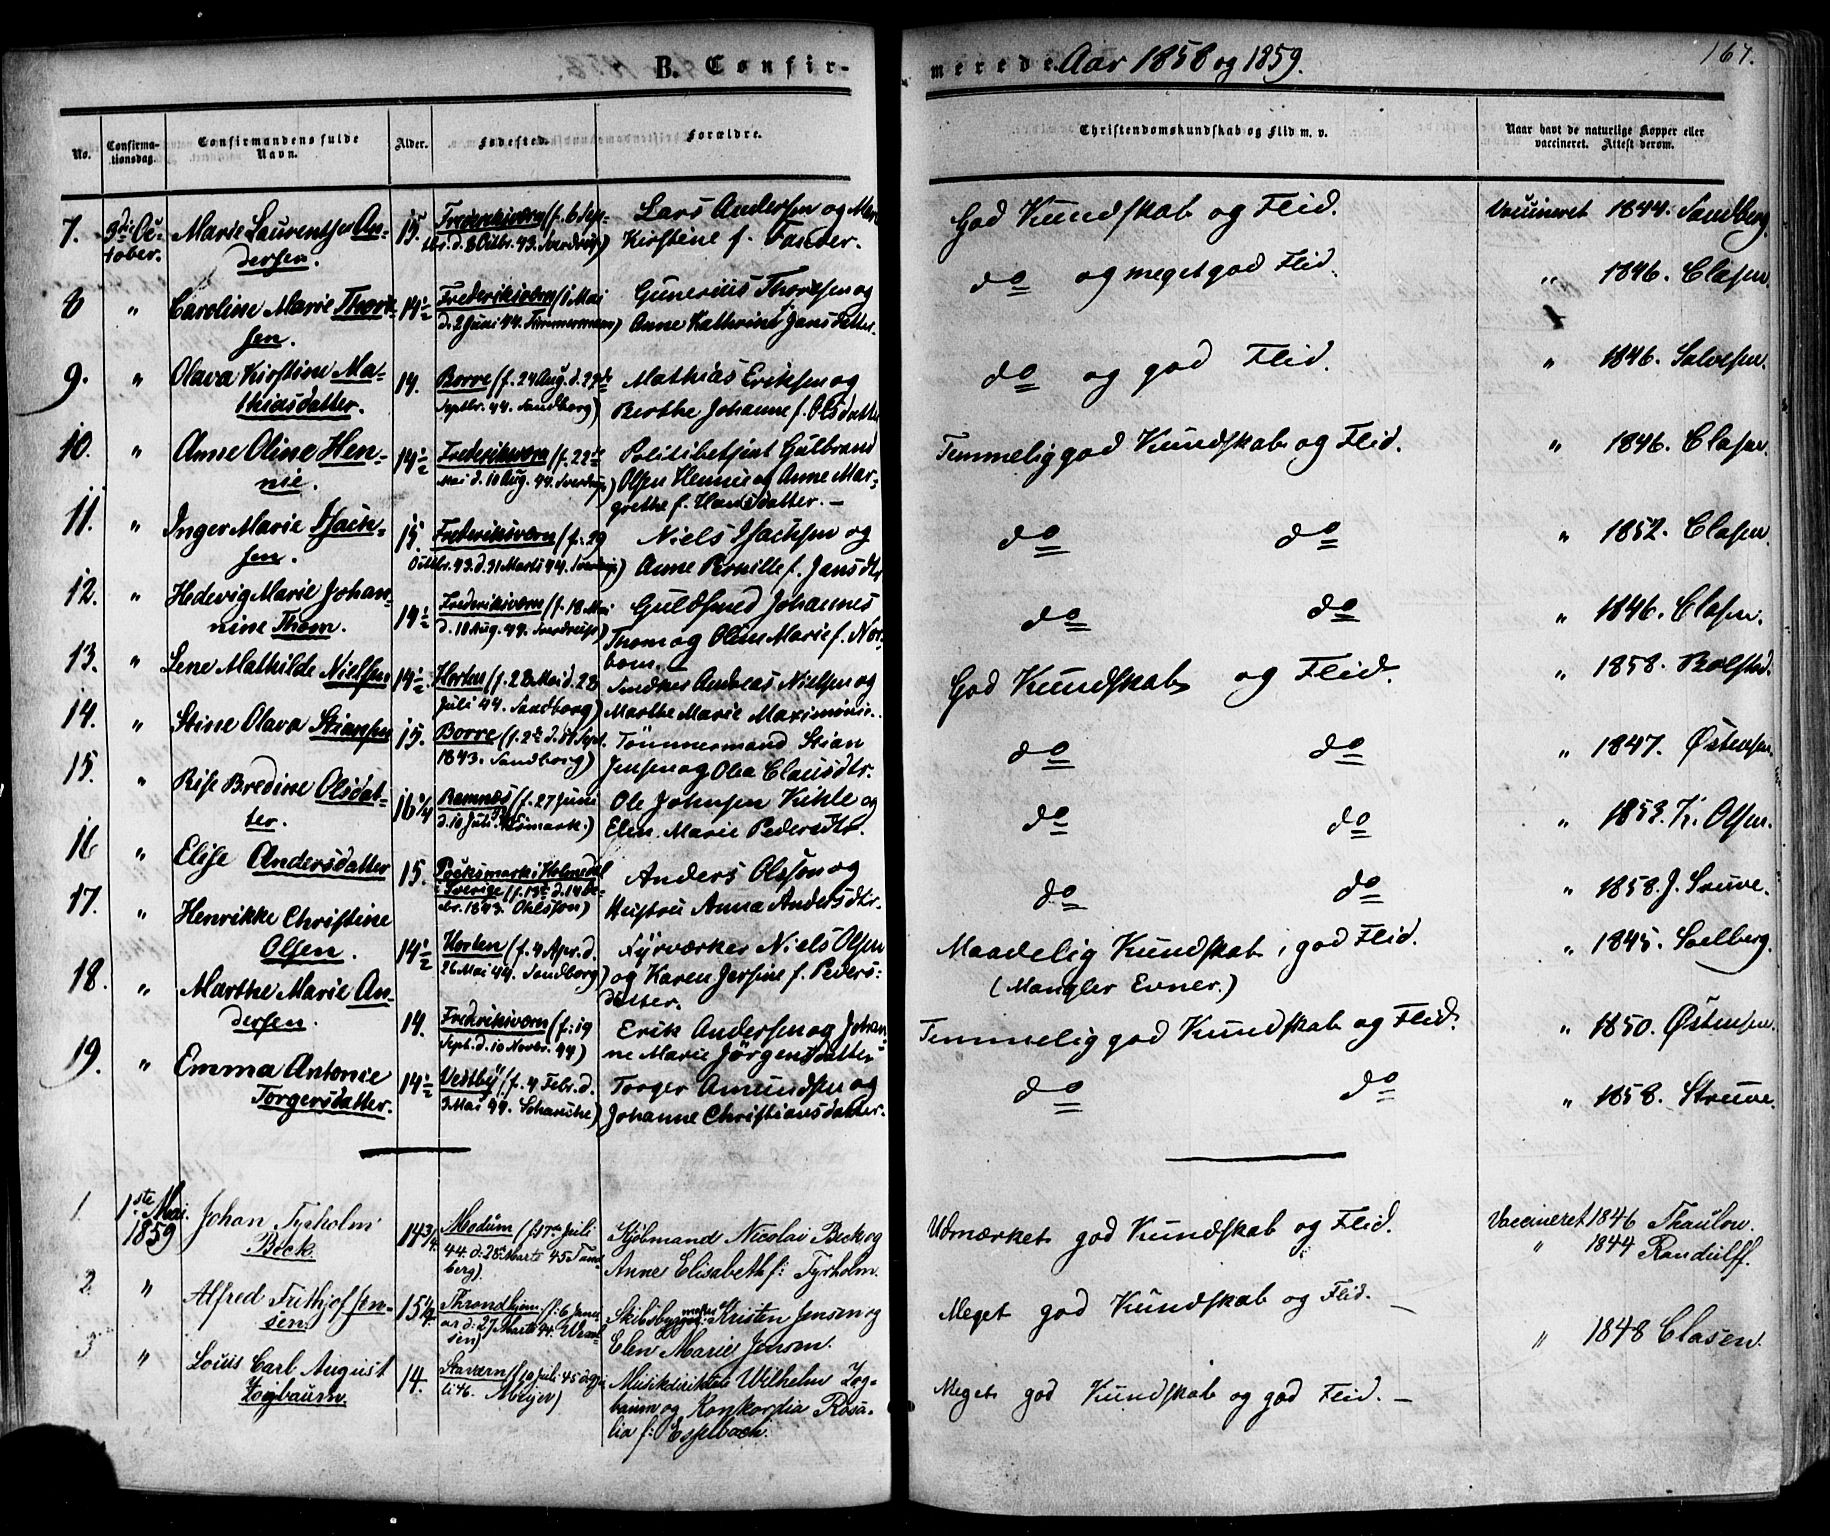 B. Confir-
merede. Aar 1858 og 1859.
167.
No.
Confirma-
tionsdag.
Confirmandens fulde
Navn.
Alder.
Fødested.
Forældre.
Christendomskundskab og Flid m. v.
Naar havt de naturlige Kopper eller
vaccineret. Attest derom.
7. 3die Oc-
tober. Marie Laurentse An-
dersen. 15. Frederiksværn (f. 6 Sep-
tbr. d. 8 Octbr. 43. Sverdrup) Lars Andersen og
Kirstine f. Fander. God Kundskab og Flid. Vaccineret 1844. Sandberg.
8 " Caroline Marie Thor-
sen. 14½ Frederiksværn (1 Mai
d. 2 Juni 44. Timmermann) Gunerius Thorsen og
Anne Kathrine Jansdatter. do og meget god Flid. " 1846. Clasen.
9. " Olava Kirstine Ma-
thiasdatter. 14. Borre (f. 24 Aug. d. 29de
Septbr. 44. Sandberg) Mathias Eriksen og
Berthe Johanne f. Olsdatter do og god Flid. " 1846. Salvesen.
10. " Anne Oline Hen-
nie. 14½ Frederiksværn (f. 22de
Mai d. 10 Aug. 44. Sverdrup) Politibetjent Gulbrand
Olsen Hennie og Anne Mar-
grethe f. Hansdatter. — Temmelig god Kundskab og Flid. " 1846. Clasen.
11. " Inger Marie Isach-
sen. 15. Frederiksværn (f. 29
Octbr. 43. d. 31 Marts 44. Sverdrup) Niels Isachsen og
Anne Pernille f. Jansdtr do do " 1852. Clasen.
12. " Hedevig Marie Johan-
nine Thom. 14½ Frederiksværn (f. 18 Mai
d. 18 Aug. 44. Sverdrup) Guldsmed Johannes
Thom og Oline Marie f. Nor-
bom. do do " 1846. Clasen.
13. " Lene Mathilde Nielsen 14½. Horten (f. 23 Mai d. 28
Juli 44. Sandberg) Snedker Andreas Nielsen og
Marthe Marie God Kundskab og Flid. " 1858. Bolstad.
14. " Stine Olava Stiansen 15. Borre (f. 2de d. Sept.
1843. Sandberg) Tömmermand Stian
Jensen og Olea Clausdtr. do do " 1847. Østensen.
15. " Rise Bredine Olsdat-
ter. 16¼ Ramnæs (f. 27 Juni
d. 10 Juli Ole Johnsen Kihle og
Elen Marie Pedersdtr. do do " 1853. K. Olsen.
16 " Elise Andersdatter 15. i
Sverige (f. 13de d. 14
1843. Ohlsson) Anders Olsson og
Hustru Anna Andersdtr. do do " 1858. J. Struve.
17. " Henrikke Christine
Olsen. 14½ Horten (f. 4 Apr. d.
26 Mai 44. Sandberg) Fyrværker Niels Olsen
og Karen f. Peders-
datter. Maadelig Kundskab, god Flid.
(Mangler Evner.) " 1845. Solberg.
18. " Marthe Marie An-
dersen. 14. Frederiksværn (f: 19
Sept. d. 10 Novbr. 44) Erik Andersen og Johan-
ne Marie Jörgensdatter Temmelig god Kundskab og Flid. " 1850. Østensen.
19. " Emma Antonie
Torgersdatter. 14½ Vestby (f. 4 Febr. d.
Mai 44. Torger Amundsen og
Johanne Christiansdatter. do do " 1858. Struve.
1. 1ste Mai.
1859 Johan Tyrholm
Beck. 14¾. Modum (f. Juli
44. d. 28 Marts 45 Tand-
berg). Kjöbmand Nicolai Beck og
Anne Elisabeth f: Tyrholm. Udmærket god Kundskab og Flid. Vaccineret 1846 Thaulow.
2. " Alfred Frithjof Jen-
sen. 15¼ Throndhjem (f: 6 Janu-
ar d: 27 Marts 44. Skibsbyggmester Kristen Jensen og
Elen Marie Jensen. Meget god Kundskab og Flid. — " 1844 Randulff.
3 " Louis Carl August
Zogbaum. 14. Stavern (f 10 Juli 45 d
46. Musikdirektör Wilhelm Zog-
baum og Konkordia Rosa-
lia f: Esselbach. Meget god Kundskab og god Flid. — " 1848 Clasen.